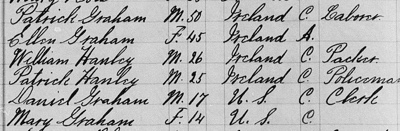 Patrick Graham M. 50 Ireland C. Laborer
Ellen Graham F. 45 Ireland A.
William Hanley M. 26 Ireland C. Packer
Patrick Hanley M. 25 Ireland C. Policeman
Daniel Graham M. 17 U. S. C. Clerk
Mary Graham F. 14 U. S. C.